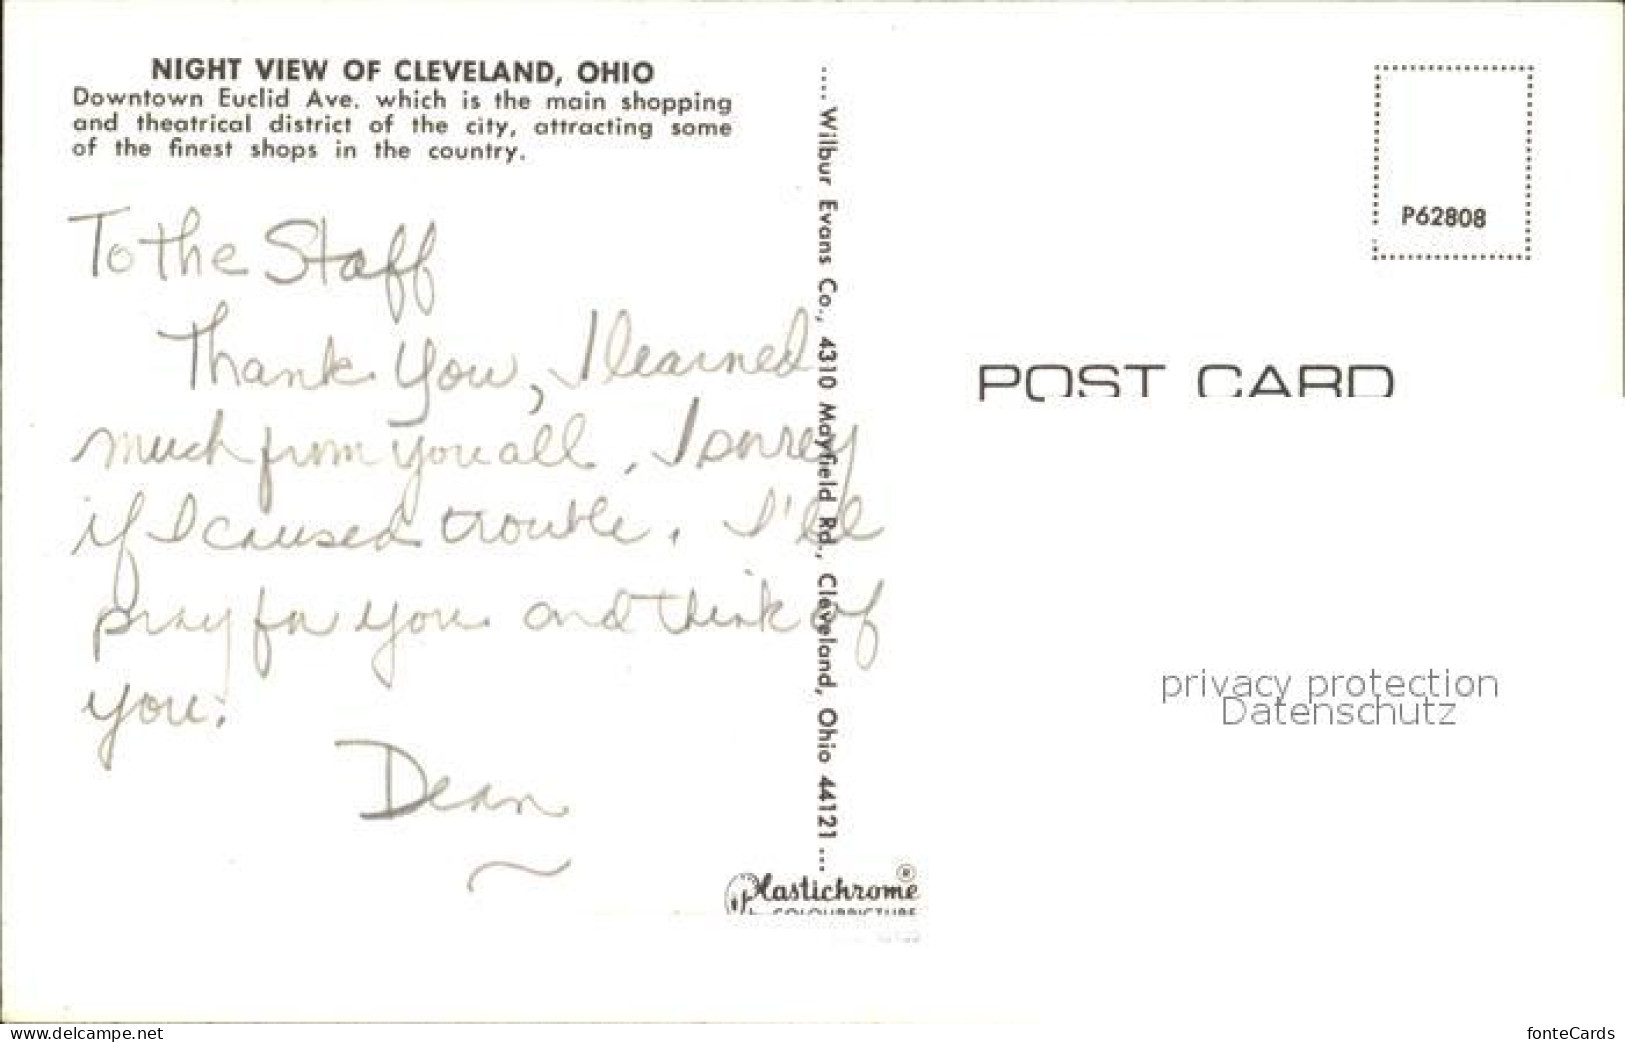 NIGHT VIEW OF CLEVELAND, OHIO
Downtown Euclid Ave. which is the main shopping
and theatrical district of the city, attracting some
of the finest shops in the country.
To the Staff
Thank You, I learned
much from you all. I sorrey
if I caused trouble. I'll
pray for you and think of
you.
Dean
.... Wilbur Evans Co., 4310 Mayfield Rd., Cleveland, Ohio 44121 ...
Plastichrome ®
by COLOURPICTURE
P62808
POST CARD
privacy protection
Datenschutz
www.delcampe.net
fonteCards